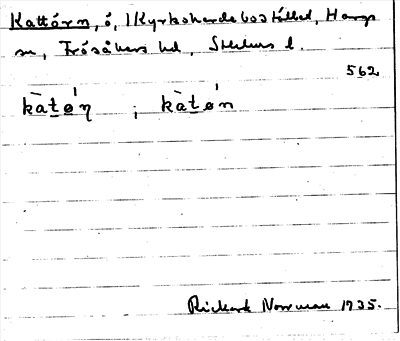 Kattörn, ö, i Kyrkoherdebostället, Hargs
sn, Frösåkers hd, Sthlms l.
562
kàt̲ø̲ŋ ; kàt̲øn
Rickard Norrman 1935.